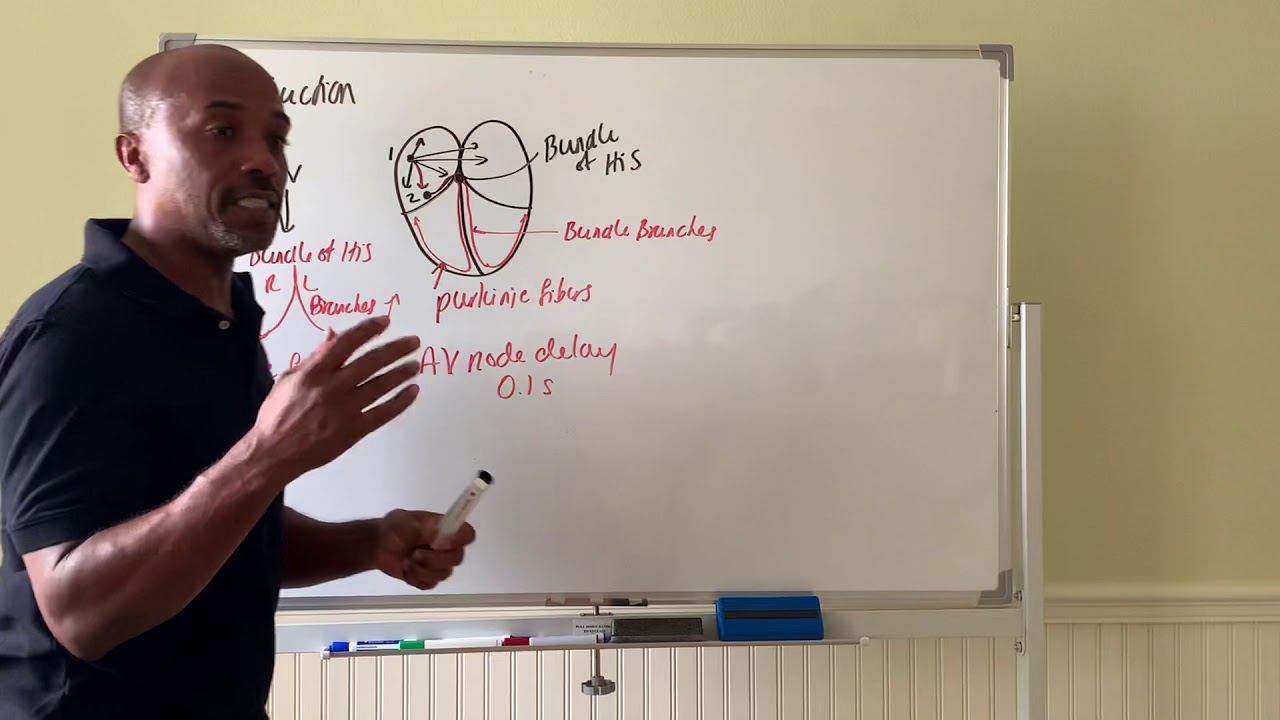 uction
1
Bundle
of His
v
2
Bundle Branches
Bundle of His
R L
Branches
purkinje fibers
AV node delay
0.1 s